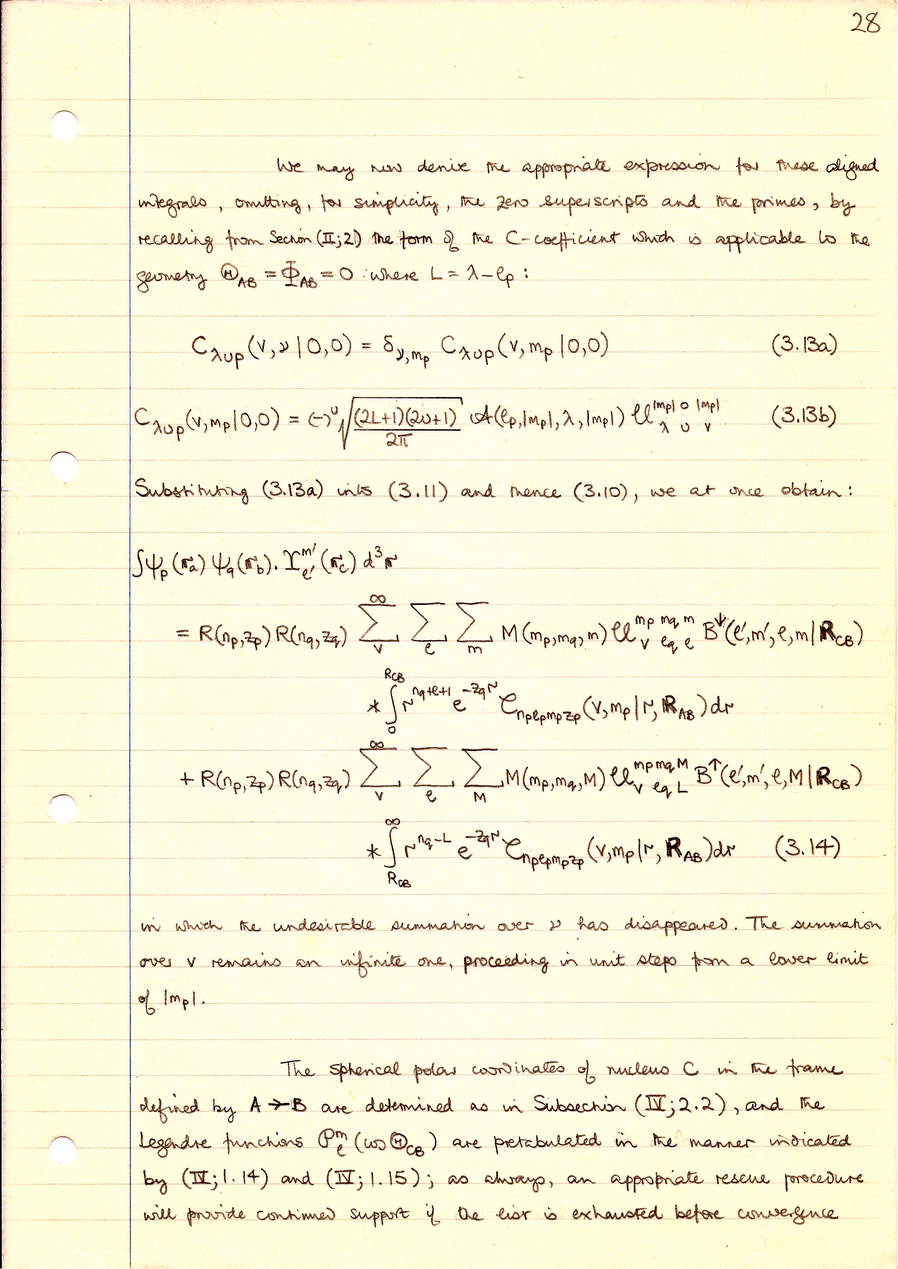 28
We may now derive the appropriate expression for these aligned
integrals, omitting, for simplicity, the zero superscripts and the primes, by
recalling from Section (II;2) the form of the C-coefficient which is applicable to the
geometry Θ_AB = Φ_AB = 0 : where L = λ − ℓ_p :
C_λυp(v,ν|0,0) = δ_ν,m_p C_λυp(v,m_p|0,0) (3.13a)
C_λυp(v,m_p|0,0) = (−)^υ √((2L+1)(2υ+1)/2π) A(ℓ_p,|m_p|,λ,|m_p|) U^{|m_p| 0 |m_p|}_{λ υ v} (3.13b)
Substituting (3.13a) into (3.11) and thence (3.10), we at once obtain :
∫ψ_p(r_a) ψ_q(r_b). Υ^{m'}_{ℓ'}(r_c) d³r
= R(n_p,z_p) R(n_q,z_q) Σ_v^∞ Σ_ℓ Σ_m M(m_p,m_q,m) U^{m_p m_q m}_{v ℓ_q ℓ} B↓(ℓ',m',ℓ,m|R_CB)
* ∫_0^{R_CB} r^{n_q+ℓ+1} e^{−z_q r} C_{n_p ℓ_p m_p z_p}(v,m_p|r,R_AB) dr
+ R(n_p,z_p) R(n_q,z_q) Σ_v^∞ Σ_ℓ Σ_M M(m_p,m_q,M) U^{m_p m_q M}_{v ℓ_q L} B↑(ℓ',m',ℓ,M|R_CB)
* ∫_{R_CB}^∞ r^{n_q−L} e^{−z_q r} C_{n_p ℓ_p m_p z_p}(v,m_p|r,R_AB) dr (3.14)
in which the undesirable summation over ν has disappeared. The summation
over v remains an infinite one, proceeding in unit steps from a lower limit
of |m_p|.
The spherical polar coordinates of nucleus C in the frame
defined by A→B are determined as in Subsection (IV;2.2), and the
Legendre functions P^m_ℓ(cos Θ_CB) are pretabulated in the manner indicated
by (IV;1.14) and (IV;1.15); as always, an appropriate rescue procedure
will provide continued support if the list is exhausted before convergence